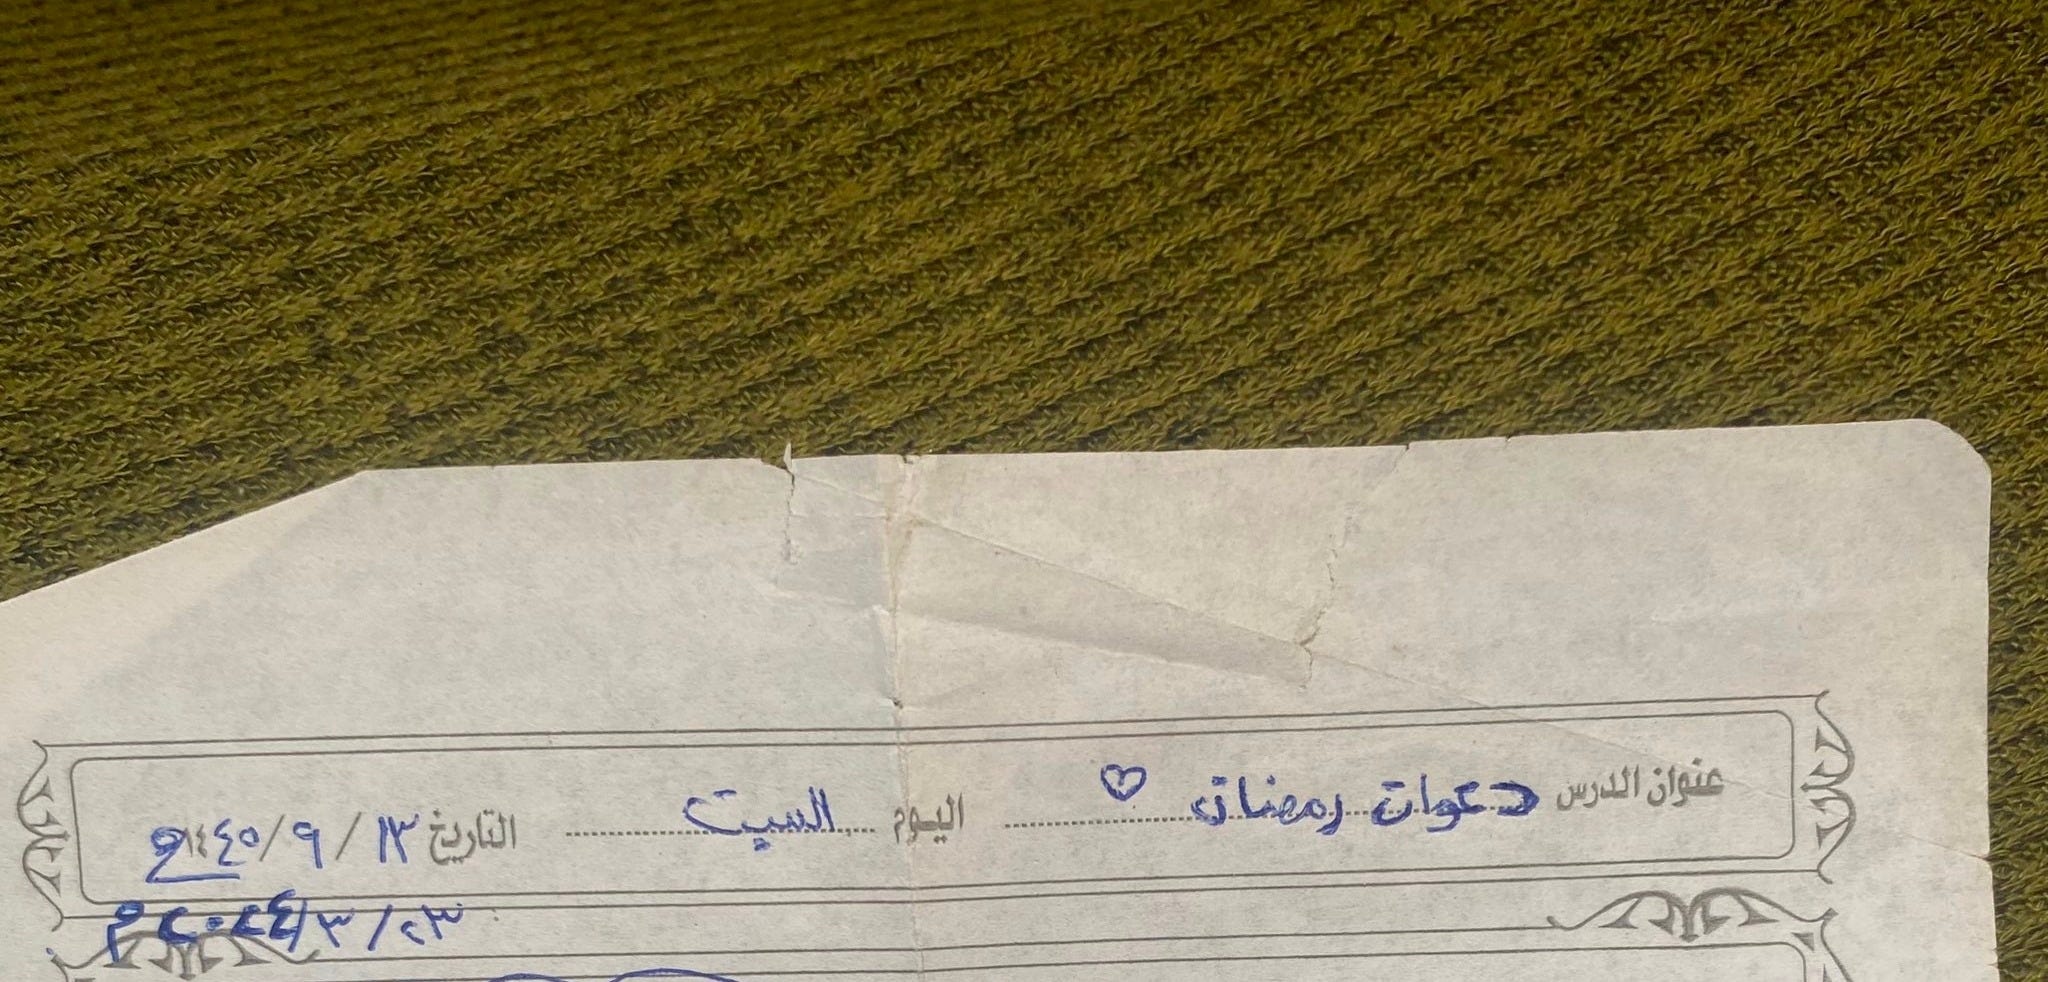 عنوان الدرس دعوات رمضان ♡ اليوم السبت التاريخ ١٣ / ٩ / ١٤٤٥هـ
٢٣ / ٣ / ٢٠٢٤م